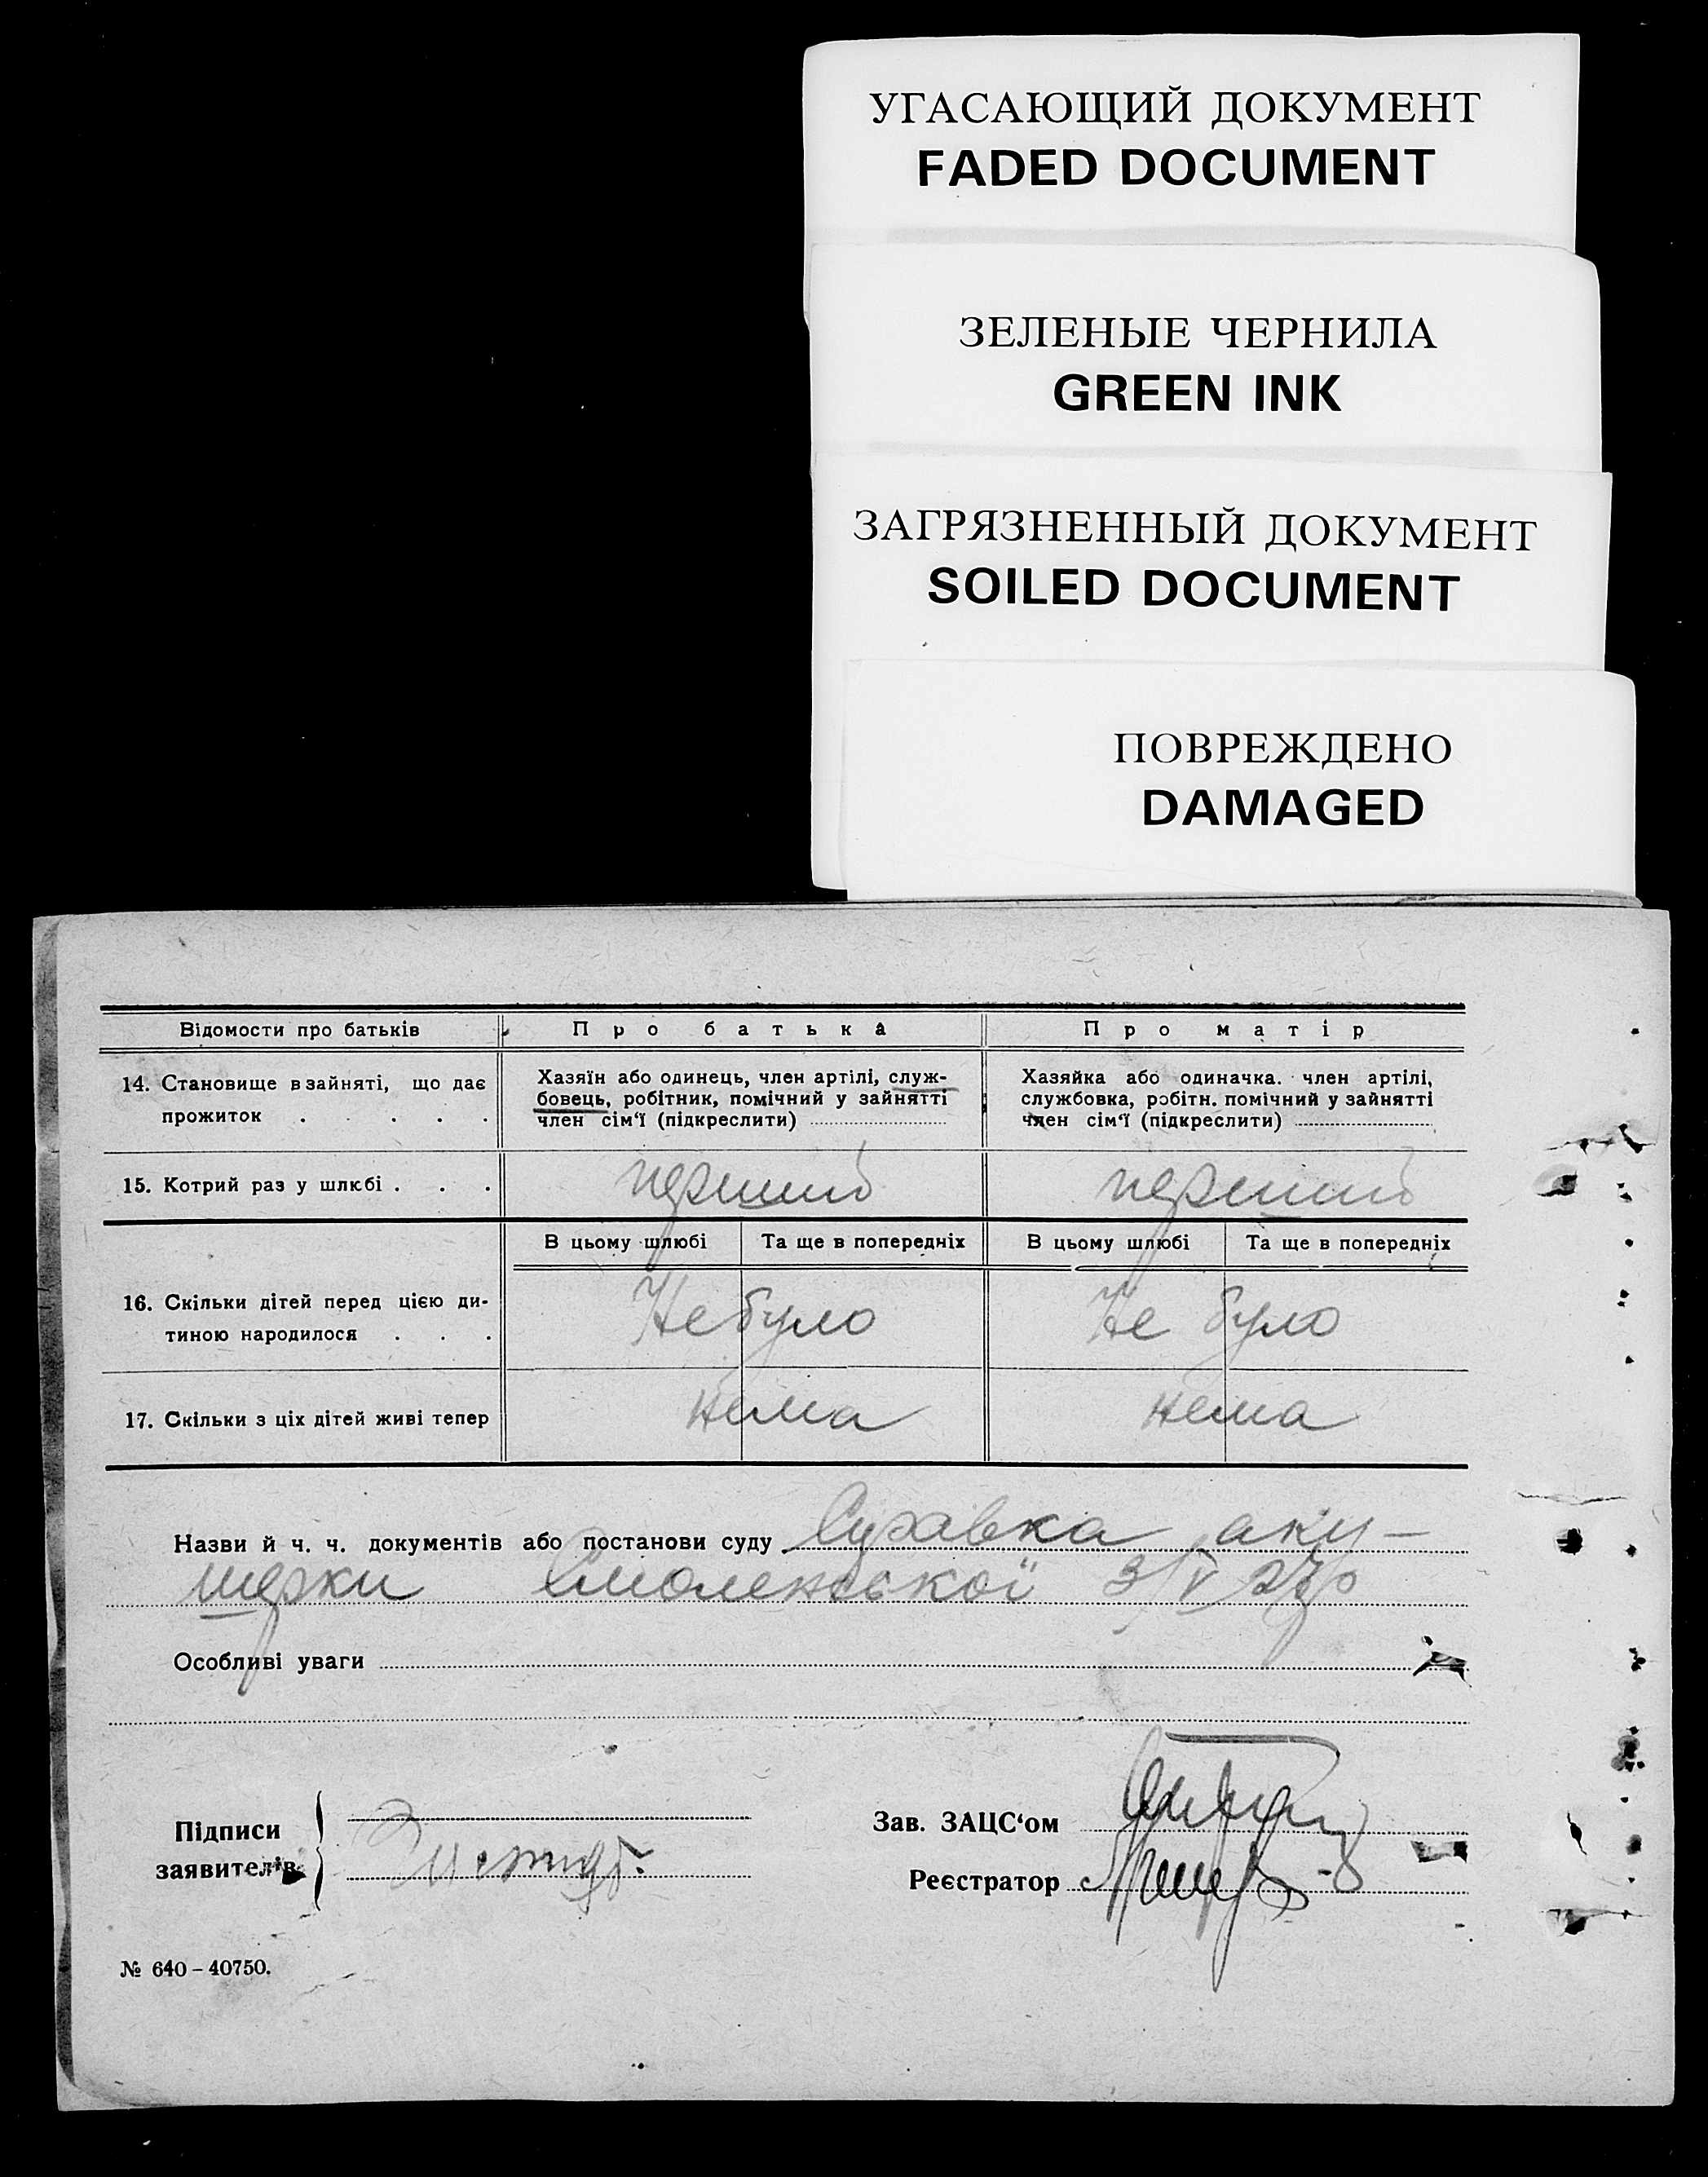 УГАСАЮЩИЙ ДОКУМЕНТ
FADED DOCUMENT
ЗЕЛЕНЫЕ ЧЕРНИЛА
GREEN INK
ЗАГРЯЗНЕННЫЙ ДОКУМЕНТ
SOILED DOCUMENT
ПОВРЕЖДЕНО
DAMAGED
Відомости про батьків
Про батька
Про матір
14. Становище в зайняті, що дає
прожиток . . . . .
Хазяїн або одинець, член артілі, служ-
бовець, робітник, помічний у зайнятті
член сім'ї (підкреслити)
Хазяйка або одиначка. член артілі,
службовка, робітн. помічний у зайнятті
член сім'ї (підкреслити)
15. Котрий раз у шлюбі . . .
перший
перший
В цьому шлюбі
Та ще в попередніх
В цьому шлюбі
Та ще в попередніх
16. Скільки дітей перед цією ди-
тиною народилося . . .
Не було
Не було
17. Скільки з ціх дітей живі тепер
нема
нема
Назви й ч. ч. документів або постанови суду Справка аку-
шерки Смоленської 3/V 27р
Особливі уваги
Підписи
заявителів
Зав. ЗАЦС‘ом
Реєстратор
№ 640 – 40750.